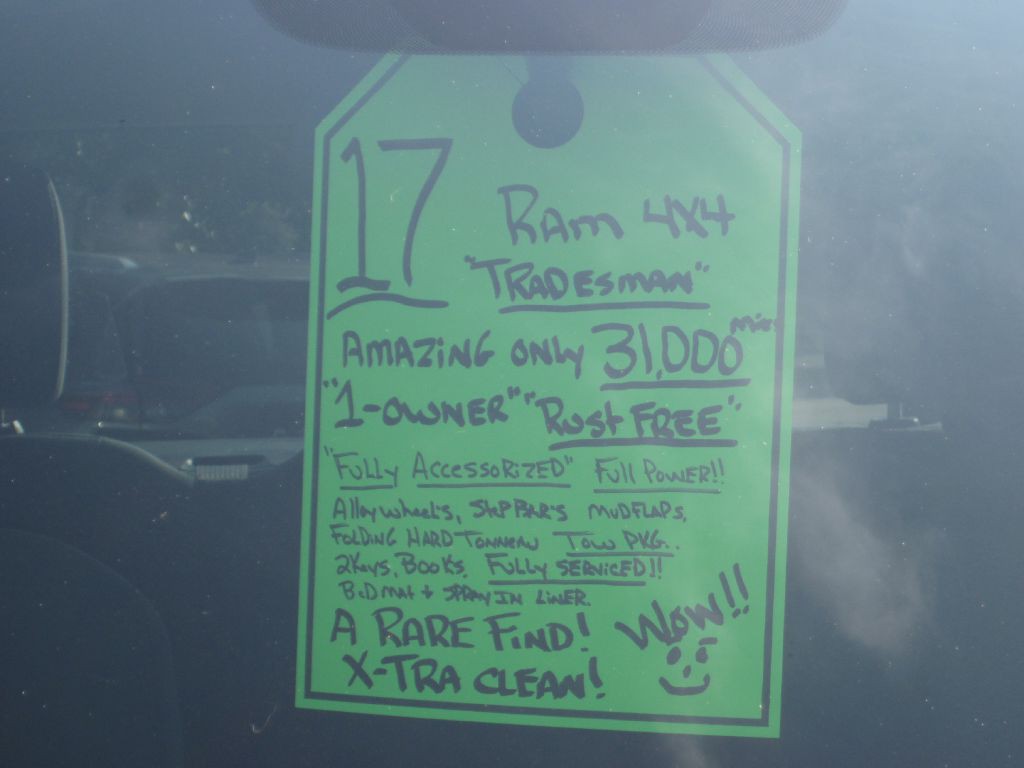 17
Ram 4x4
"TRADESMAN"
AMAZING ONLY 31,000 Miles
"1-OWNER" "Rust FREE"
"Fully Accessorized" Full Power!!
Alloy wheels, Step Bar's MUDFLAPS,
FOLDING HARD TONNEAU TOW PKG.
2Keys, Books, Fully SERVICED!!
BED MAT + SPRAY IN LINER.
A RARE FIND! WOW!!
X-TRA CLEAN!